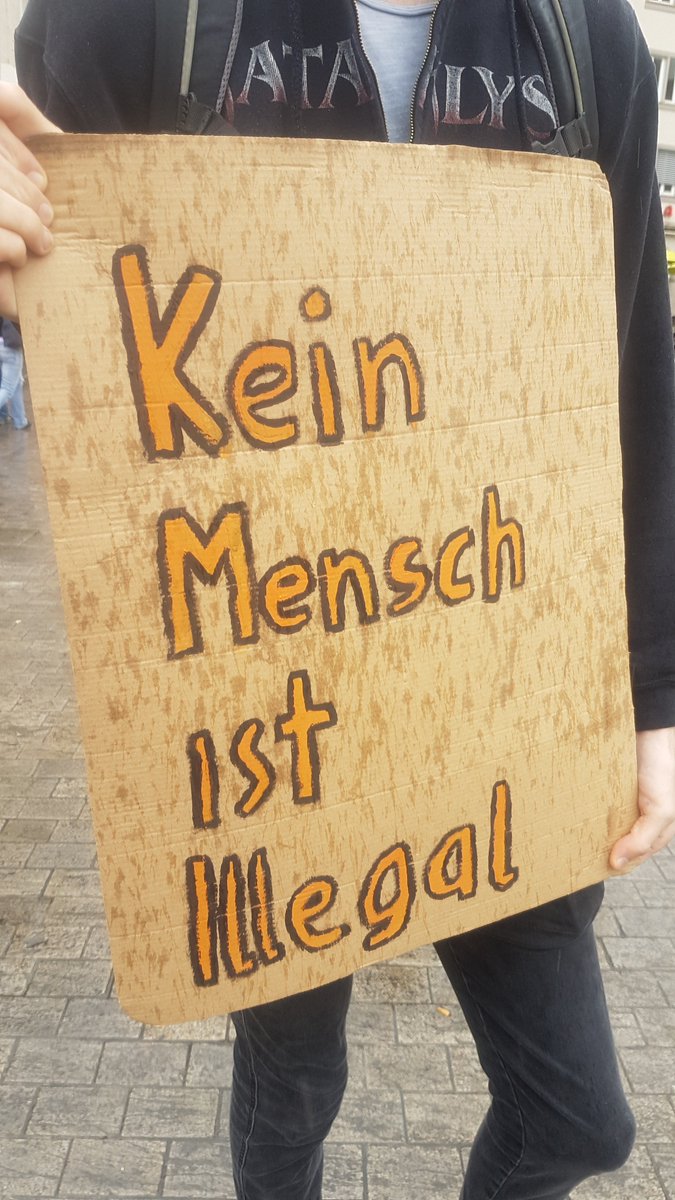 KATAKLYS
Kein
Mensch
ist
Illegal